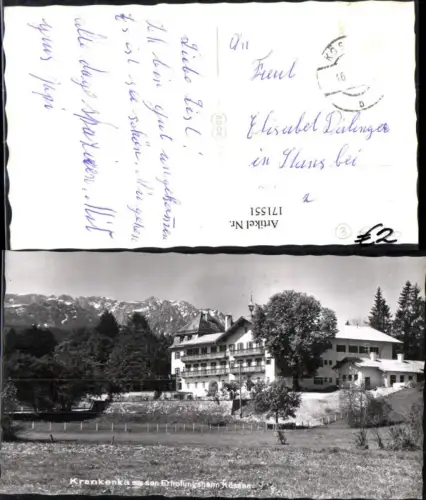 Liebe Lisl!
Ich bin gut angekommen
Es ist sehr schön. Wir gehen
alle Tage spazieren. Mit
Gruß
An
Freul
Elisabet
in Stans bei
Artikel Nr.
171551
€2
Krankenkassen Erholungsheim Kössen